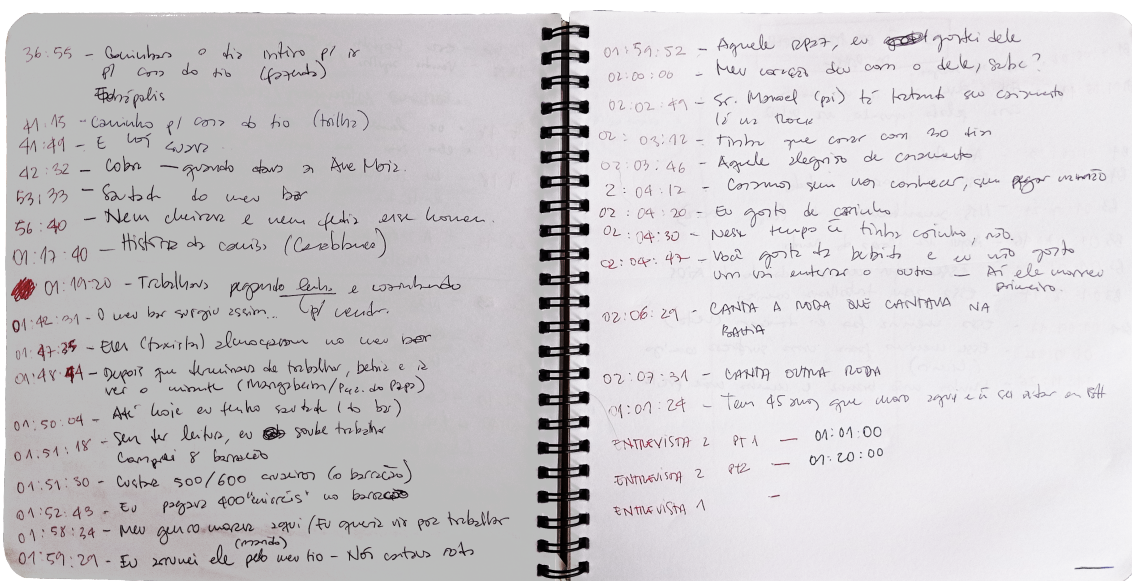 36:55 - Caminhava o dia inteiro p/ ir
p/ casa do tio (fazenda)
41:15 - Caminho p/ casa do tio (trilha)
41:49 - E
42:32 - Cobra - quando dava a Ave Maria.
53:33 - Saudade do meu bar
56:40 - Nem cheirava e nem fedia esse homem.
01:17:40 - História da camisa (Casablanca)
01:19:20 - Trabalhava pegando lenha e cozinhando
p/ vender.
01:42:31 - O meu bar surgiu assim...
01:47:35 - Eles (taxista) almoçavam no meu bar
01:48:44 - Depois que terminava de trabalhar, bebia e ia
ver o mirante (Mangabeiras/Pça. do Papa)
01:50:04 - Até hoje eu tenho saudade (do bar)
01:51:18 - Sem ter leitura, eu soube trabalhar
Comprei 8 barracão
01:51:50 - Custava 500/600 cruzeiros (o barracão)
01:52:43 - Eu pagava 400 "mirréis" no barracão
01:58:34 - Meu genro morava aqui/Eu queria vir pra trabalhar
01:59:29 - Eu arrumei ele (marido) pelo meu tio - Nós cantava roda
01:59:52 - Aquele rapaz, eu gostei dele
02:00:00 - Meu coração deu com o dele, sabe?
02:02:49 - Sr. Manoel (pai) tá tratando seu casamento
lá na Roça
02:03:12 - tinha que casar com 30 dias
02:03:46 - Aquele alegria de casamento
2:04:12 - Casamos sem nos conhecer, sem pegar na mão
02:04:20 - Eu gosto de carinho
02:04:30 - Nesse tempo ñ tinha carinho, não.
02:04:47 - Você gosta da bebida e eu não gosto
um vai enterrar o outro - Aí ele morreu
primeiro.
02:06:29 - CANTA A RODA QUE CANTAVA NA
BAHIA
02:07:31 - CANTA OUTRA RODA
01:01:24 - Tem 45 anos que moro aqui e ñ sei andar em BH
ENTREVISTA 2 PT1 - 01:01:00
ENTREVISTA 2 PT2 - 01:20:00
ENTREVISTA 1 -